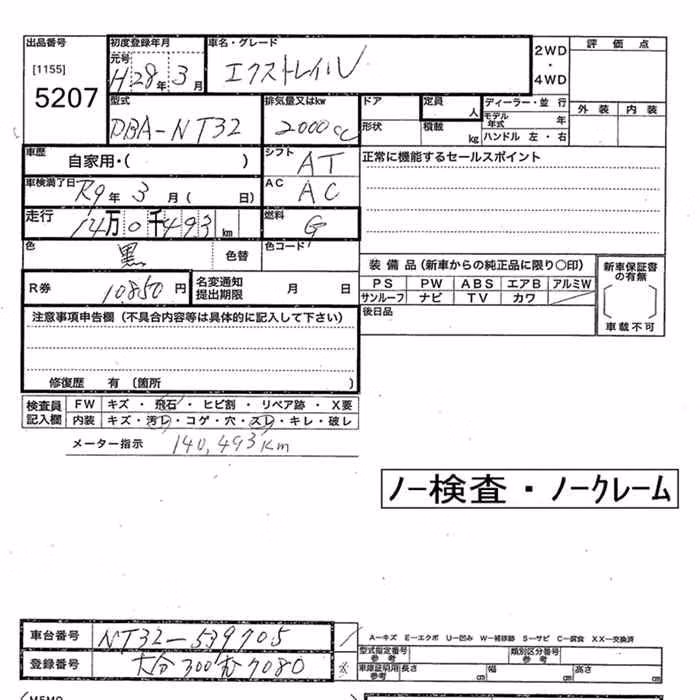 出品番号
[1155]
5207
初度登録年月
元号
H28年3月
車名・グレード
エクストレイル
2WD
・
4WD
評価点
外装 内装
型式
DBA-NT32
排気量又はkw
2000cc
ドア
形状
定員
人
積載
kg
ディーラー・並行
モデル年式 年
ハンドル 左・右
車歴
自家用・( )
シフト
AT
正常に機能するセールスポイント
車検満了日
R9年3月( 日)
AC
AC
走行
14万0千493km
燃料
G
色
黒
色替
色コード
R券 10850円
名変通知
提出期限
月 日
装備品(新車からの純正品に限り〇印)
PS PW ABS エアB アルミW
サンルーフ ナビ TV カワ
後日品
新車保証書
の有無
車載不可
注意事項申告欄(不具合内容等は具体的に記入して下さい)
修復歴 有(箇所 )
検査員
記入欄
FW キズ・飛石・ヒビ割・リペア跡・X要
内装 キズ・汚レ・コゲ・穴・スレ・キレ・破レ
メーター指示 140,493km
ノー検査・ノークレーム
車台番号 NT32-539705
登録番号 大分300 7080
A-キズ E-エクボ U-凹み W-補修跡 S-サビ C-腐食 XX-交換済
型式指定番号
参考
類別区分番号
参考
車庫証明用
参考
長さ cm 幅 cm 高さ cm
(MEMO